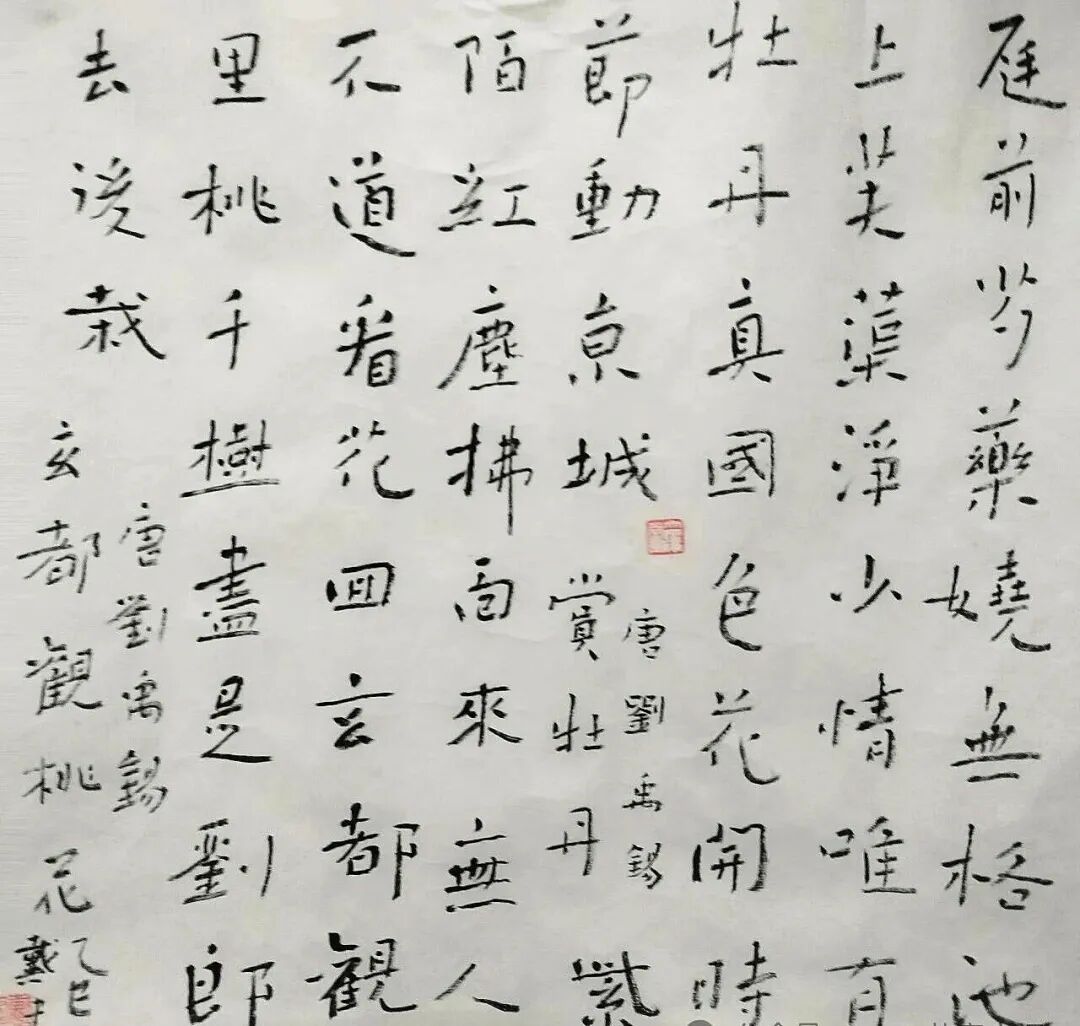 庭前芍藥嬈無格池
上芙蕖淨少情唯有
牡丹真國色花開時
唐劉禹錫
節動京城 賞牡丹 紫
陌紅塵拂面來無人
不道看花回玄都觀
里桃千樹盡是劉郎
唐劉禹錫
去後栽 玄都觀桃花
乙巳
戴